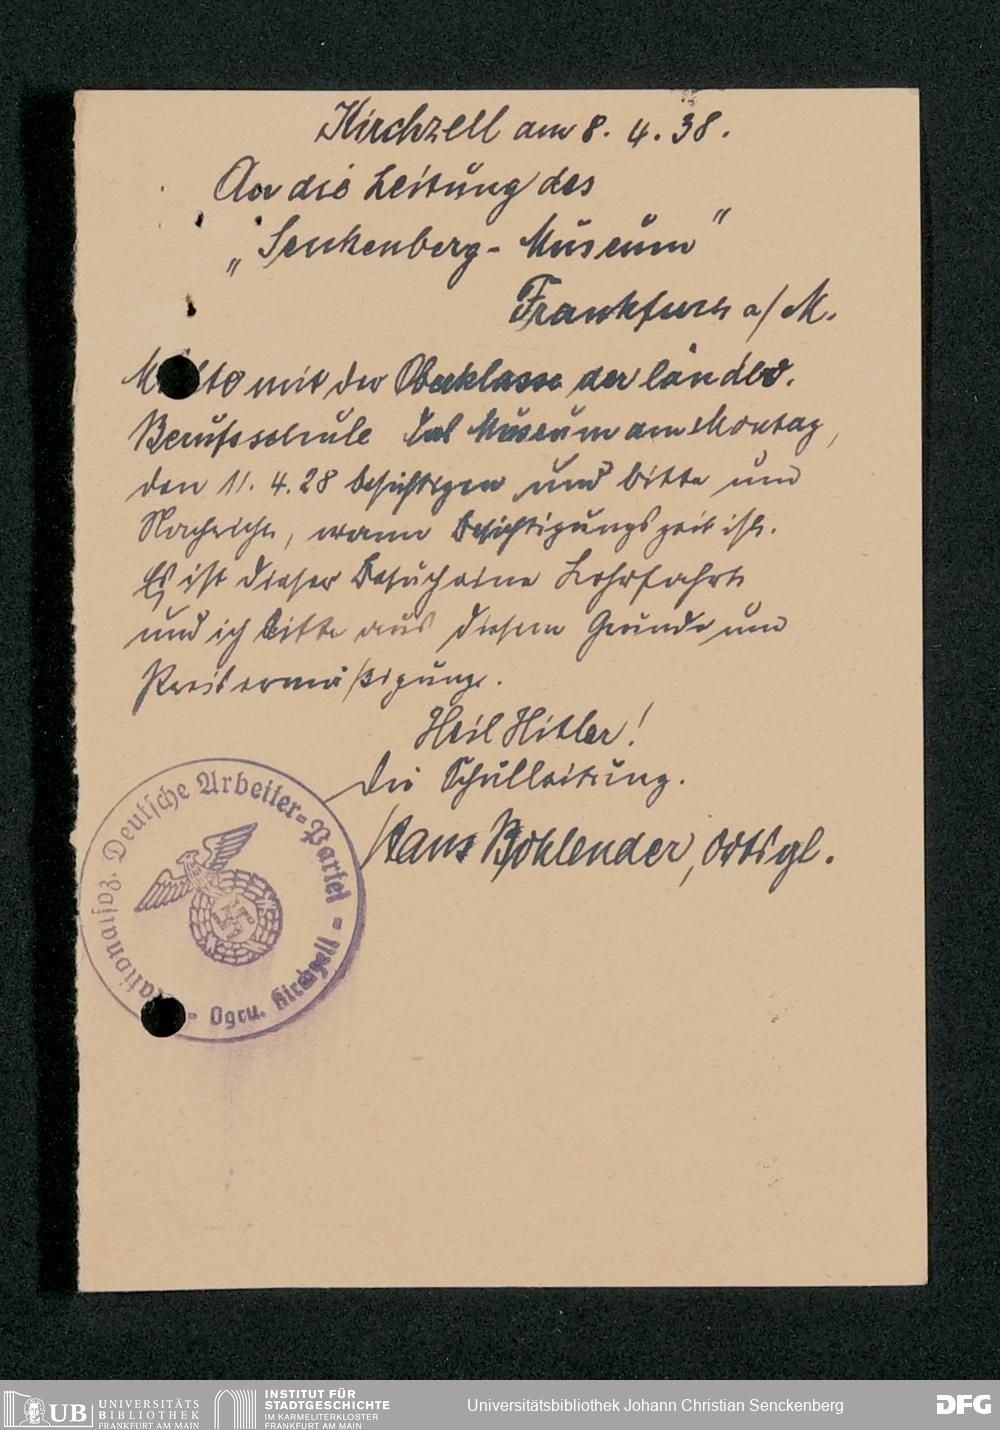 Kirchzell am 8. 4. 38.
An die Leitung des
„Senkenberg-Museum"
Frankfurt a/M.
mit der Oberklasse der landw.
Berufsschule das Museum am Montag,
den 11. 4. 28 besichtigen und bitte um
Nachricht, wann Besichtigungszeit ist.
Es ist dieser Besuch eine Lehrfahrt
und ich bitte aus diesem Grunde um
Preisermäßigung.
Heil Hitler!
Die Schulleitung.
Hans Bohlender, Ortsgl.
Nationalsoz. Deutsche Arbeiter-Partei
- Ogru. Kirchzell -
UB UNIVERSITÄTS
BIBLIOTHEK
FRANKFURT AM MAIN
INSTITUT FÜR
STADTGESCHICHTE
IM KARMELITERKLOSTER
FRANKFURT AM MAIN
Universitätsbibliothek Johann Christian Senckenberg
DFG